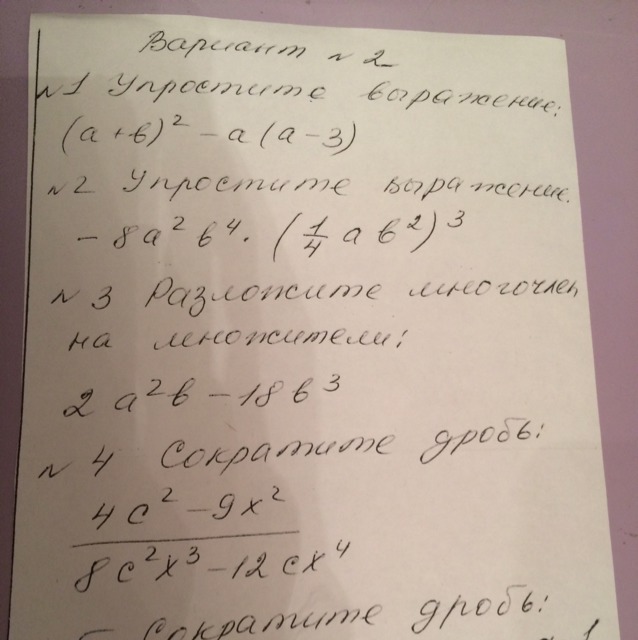 Вариант №2
№1 Упростите выражение:
(а+в)² - а(а-3)
№2 Упростите выражение.
-8а²в⁴·(1/4 ав²)³
№3 Разложите многочлен
на множители:
2а²в - 18в³
№4 Сократите дробь:
4с² - 9х²
8с²х³ - 12сх⁴
Сократите дробь: